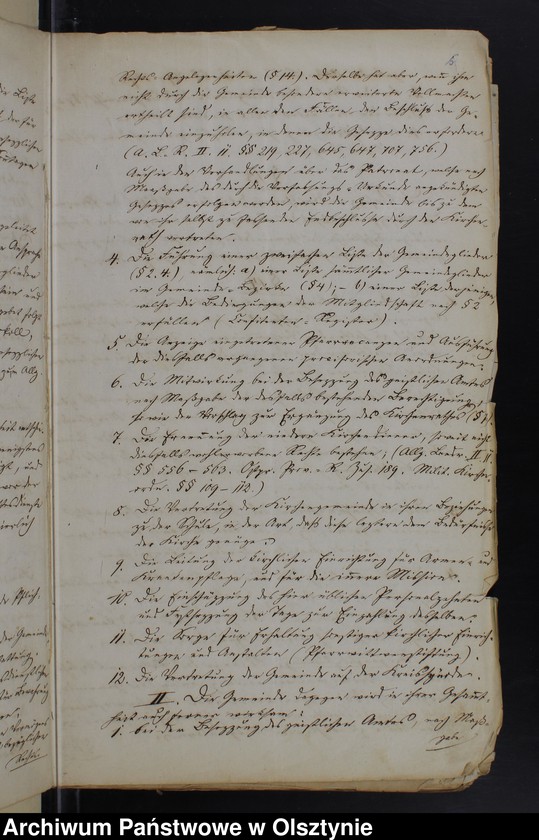 6.
Rechts-Angelegenheiten (§ 14.). Derselbe hat aber, wenn ihm
nicht durch die Gemeinde besonders erweiterte Vollmachten
ertheilt sind, in allen den Fällen, den Beschluß der Ge-
meinde einzuholen, in denen die Gesetze dies erfordern
(A. L. R. II. 11. §§ 219, 227, 645, 647, 707, 756.)
Auch in den Verhandlungen über das Patronat, welche nach
Maßgabe des durch die Verfassungs-Urkunde angekündigten
Gesetzes erfolgen werden, wird die Gemeinde bis zu dem
von ihr selbst zu fassenden Endbeschlusse durch den Kirchen-
rath vertreten.
4. Die Führung einer zweifachen Liste der Gemeindeglieder
(§ 2. 4.) nämlich: a) einer Liste sämmtlicher Gemeindeglieder
im Gemeinde-Bezirke (§ 4); – b) einer Liste derjenigen,
welche die Bedingungen der Mitgliedschaft nach § 2
erfüllen ( -Register).
5. Die Anzeige eingetretener Pfarrvacanzen und Ausführung
der diesfalls vorgangenen provisorischen Anordnungen.
6. Die Mitwirkung bei der Besetzung des geistlichen Amtes
nach Maßgabe der desfalls bestehenden Berechtigungen,
so wie der Vorschlag zur Ergänzung des Kirchenrathes (§ 7).
7. Die Ernennung der niedern Kirchendiener, soweit nicht
diesfalls wohlerworbene Rechte bestehen; (Allg. Landr. II. 11.
§§ 556–563. Ostpr. Prov.-R. Zus. 189. Milit. Kirchen-
ordn. §§ 109–112.)
8. Die Vertretung der Kirchengemeinde in ihren Beziehungen
zu der Schule, in der Art, daß diese letztere dem Bedürfnisse
der Kirche genüge.
9. Die Leitung der kirchlichen Einrichtung für Armen- und
Krankenpflege, und für die innere Mission.
10. Die Einschätzung des hier üblichen Personaldezems
und Festsetzung der Tage zur Einzahlung desselben.
11. Die Sorge für Erhaltung sonstiger kirchlicher Einrich-
tungen und Anstalten (Pfarrwittwenstiftung).
12. Die Vertretung der Gemeinde auf der Kreissynode.
II. Die Gemeinde dagegen wird in ihrer Gesammt-
heit auch ferner wirksam:
1. bei dem Besetzung des geistlichen Amtes, nach Maß-
gabe
Archiwum Państwowe w Olsztynie